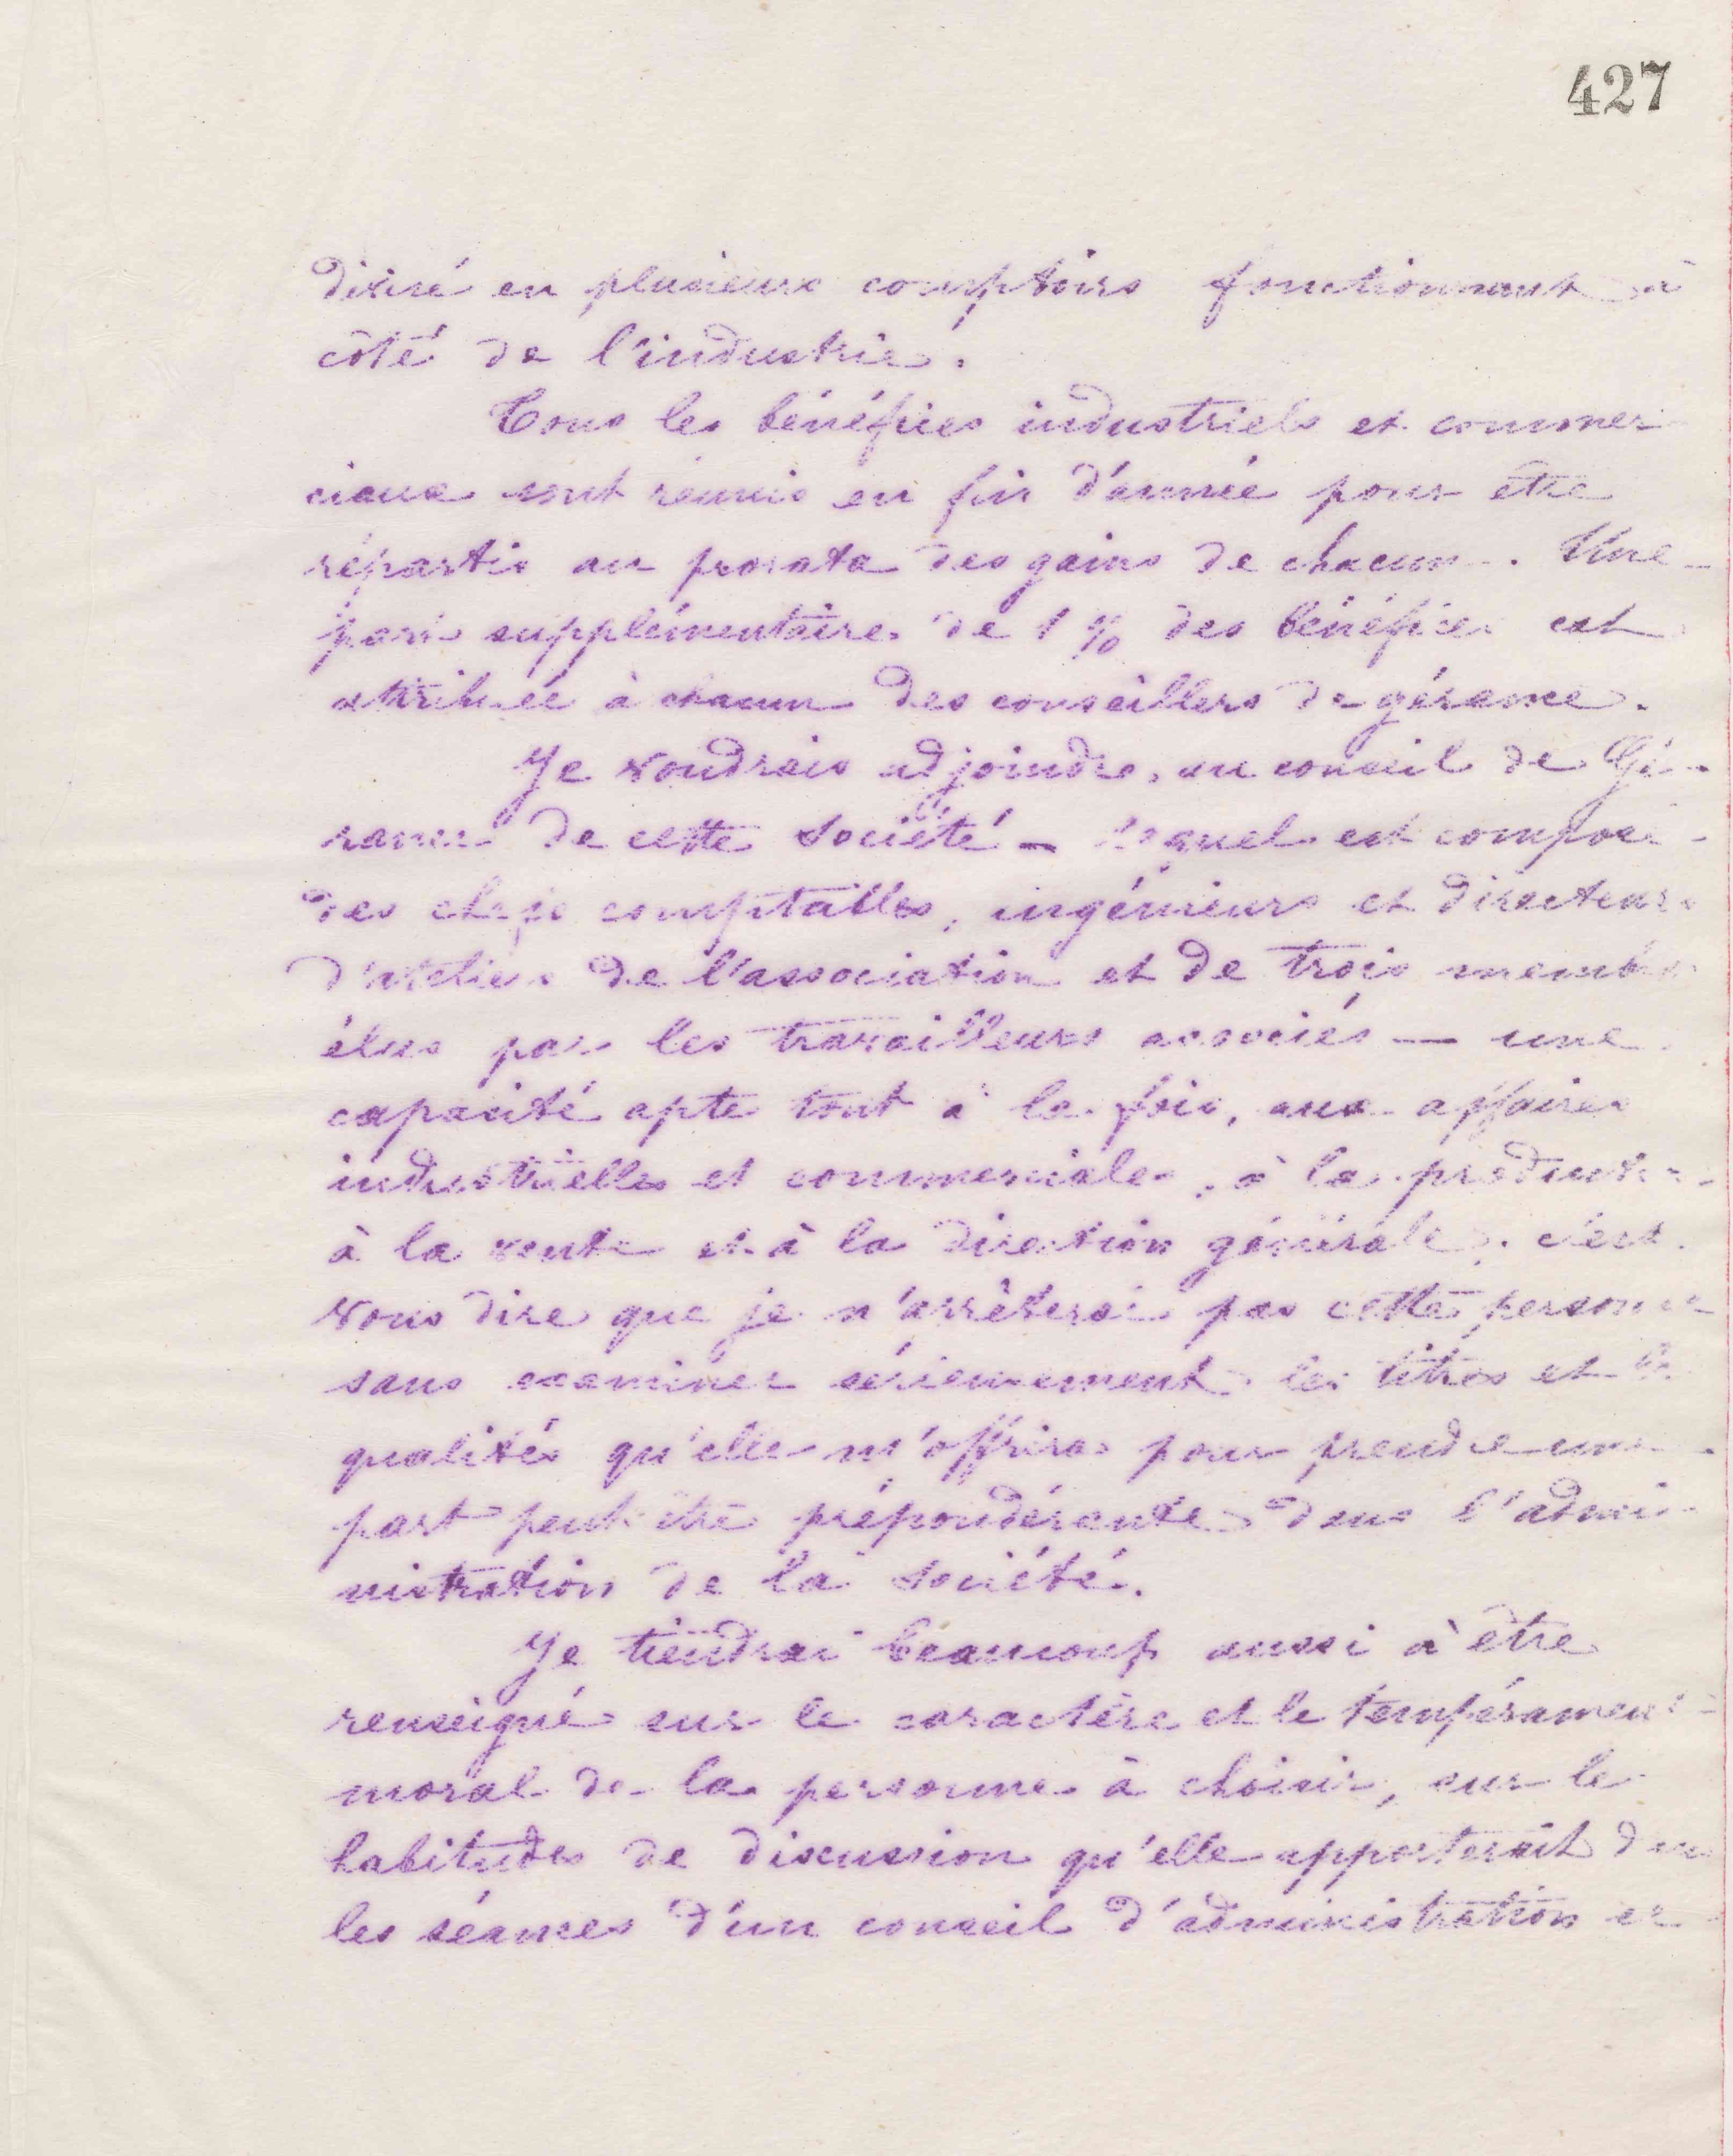 427
divisé en plusieurs comptoirs fonctionnant à
côté de l'industrie.
Tous les bénéfices industriels et commer
ciaux sont réunis en fin d'année pour être
répartis au prorata des gains de chacun. Une
part supplémentaire de 1 % des bénéfices est
attribuée à chacun des conseillers de gérance.
Je voudrais adjoindre, au conseil de Gé-
rance de cette Société - lequel est composé
des chefs comptables, ingénieurs et directeurs
d'ateliers de l'association et de trois membres
élus par les travailleurs associés — une
capacité apte tout à la fois, aux affaires
industrielles et commerciales, à la production
à la vente et à la direction générale, c'est
vous dire que je n'arrêterai pas cette personne
sans examiner sérieusement les titres et les
qualités qu'elle m'offrira pour prendre une
part peut être prépondérante dans l'admi-
nistration de la Société.
Je tiendrai beaucoup aussi à être
renseigné sur le caractère et le tempérament
moral de la personne à choisir, sur le
habitudes de discussion qu'elle apporterait dans
les séances d'un conseil d'administration et